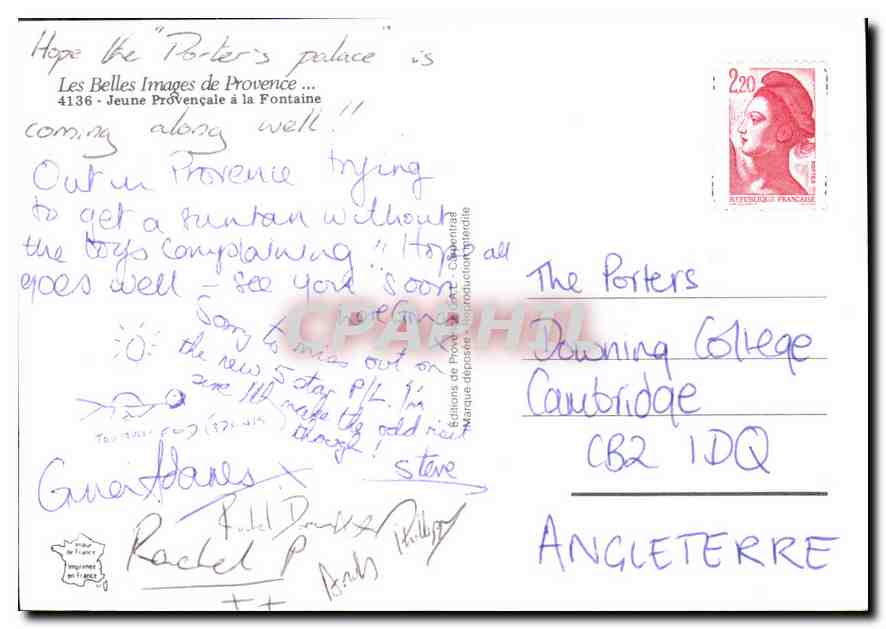 Hope the "Porter's palace" is
Les Belles Images de Provence ...
4136 - Jeune Provençale à la Fontaine
coming along well!!
Out in Provence trying
to get a suntan without
the boys complaining!! Hope all
goes well - see you soon
Sorry to miss out on
the new 5 star P/L. I'm
sure I'll make the odd visit
though!
Steve
Rachel P
Philippa
Editions de Provence
Carpentras
Marque déposée - Reproduction interdite
CPAPHIL
2,20
POSTES
REPUBLIQUE FRANÇAISE
The Porters
Downing College
Cambridge
CB2 1DQ
ANGLETERRE
de France
imprimée
en France